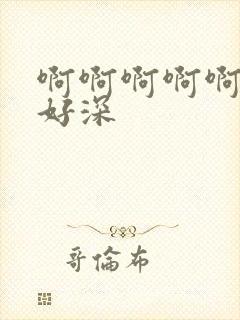 啊啊啊啊啊
好深
哥倫布